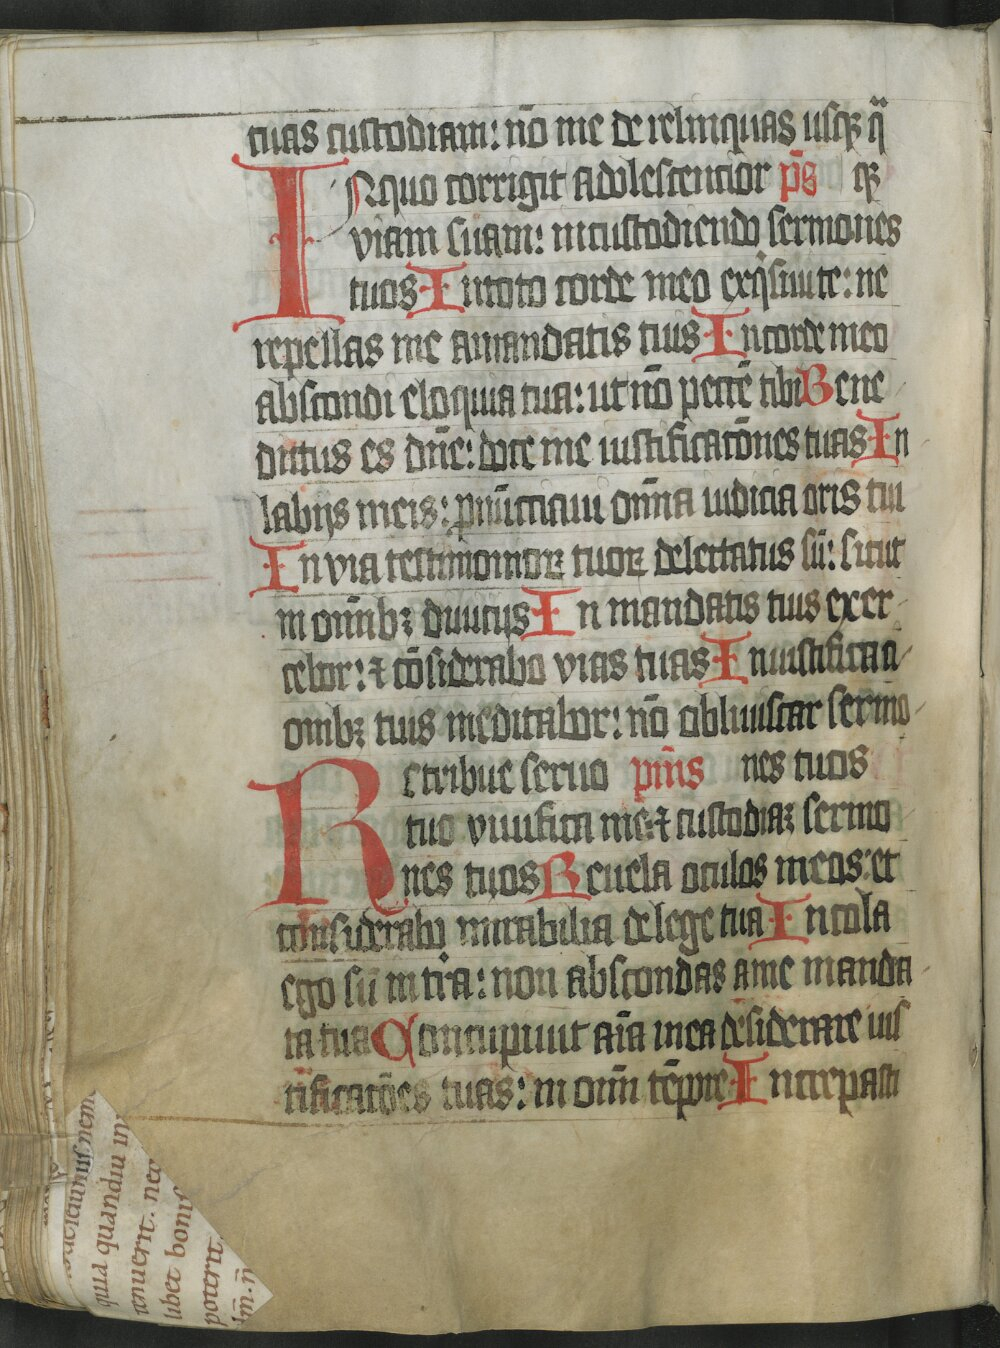 tuas custodiam: nō me derelinquas usqꝫ qͣ
INquo corrigit adolescencior pͫs qꝫ
viam suam: incustodiendo sermones
tuos Intoto corde meo exqͥsiui te: ne
repellas me amandatis tuis Incorde meo
abscondi eloquia tua: ut nō peccē tibi Bene
dictus es dn̄e: doce me iustificatōnes tuas In
labijs meis: pnūcciaui om̄ia iudicia oris tui
In via testimonioꝝ tuoꝝ delectatus sū: sicut
in om̄ibꝫ diuicijs In mandatis tuis exer
cebor: ⁊ cōsiderabo vias tuas Iniustificaci
onibꝫ tuis meditabor: nō obliuiscar sermo
Retribue seruo pm̄s nes tuos
tuo viuifica me: ⁊ custodiaꝫ sermo
nes tuos Reuela oculos meos: et
considerabo mirabilia de lege tua Incola
ego sū in tr̄a: non abscondas ame manda
ta tua Concupiuit aīa mea desiderare ius
tificatōes tuas: in om̄i tēpore Increpasti
quia quandiu in
libet bonis
poterit.